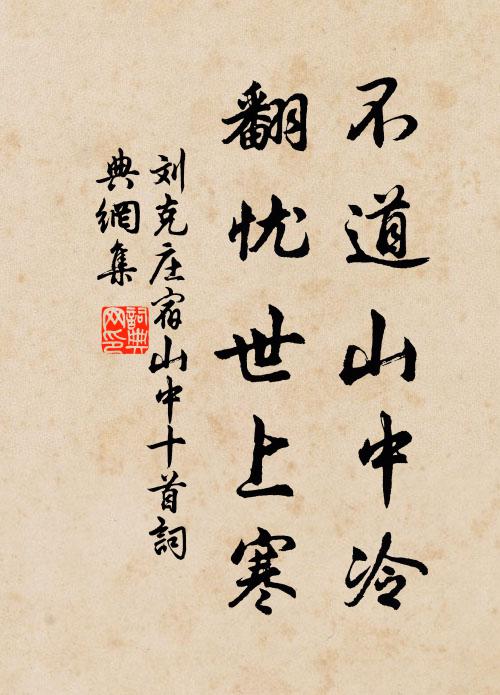 不道山中冷
翻忧世上寒
刘克庄宿山中十首詞
典網集
詞典網印